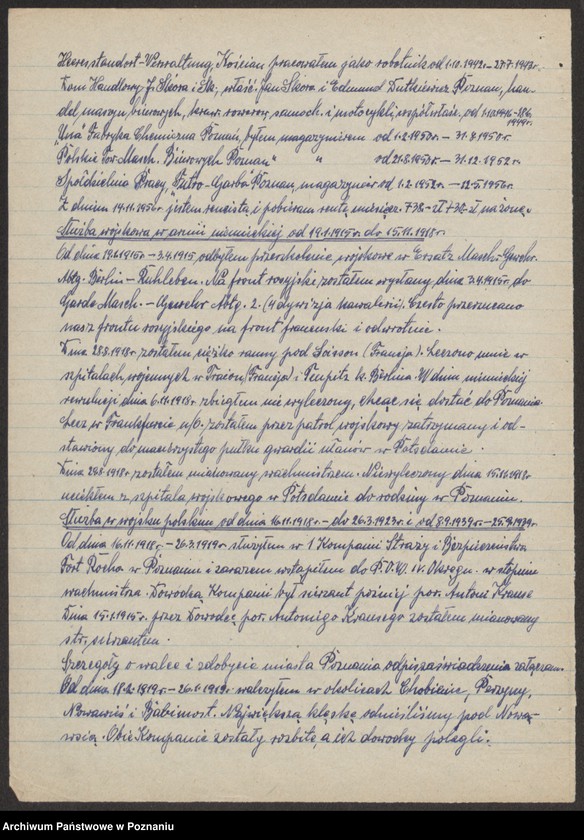 Heeresstandort-Verwaltung, Kościan, pracowałem jako robotnik od 1.10.1942r.-27.1.1945r.
Dom Handlowy J. Skóra i Ska, właść. Jan Skóra i Edmund Dutkiewicz Poznań, han-
del maszyn biurowych, rowerów, samoch. i motocykli, współwłaśc. od
"Una Fabryka Chemiczna Poznań, byłem magazynierem od 1.2.1950r. - 31.8.1950r.
Polskie Tow. Masch. Biurowych Poznań" " od 21.8.1950r. - 31.12.1952r.
Spółdzielnia Pracy, "Futro-Garba Poznań, magazynier od 1.2.1952r. -
Z dniem jestem rencistą i pobieram rentę miesięcz.
Służba wojskowa, w armii niemieckiej od 19.1.1915r. do 15.11.1918r.
Od dnia - 3.4.1915, odbyłem przeszkolenie wojskowe w Ersatz Masch. Gewehr.
Abtg. Berlin - Ruhleben. Na front rosyjski zostałem wysłany, dnia 3.4.1915r. do
Garde Masch. - Gewehr Abtg. 2. (4 dywizja kawalerii). Często przerzucano
nas z frontu rosyjskiego na front francuski i odwrotnie.
Dnia 28.8.1918r. zostałem ciężko ranny pod Soisson (Francja). Leczono mnie w
szpitalach wojennych w (Francja) i Teupitz k. Berlina. W dniu niemieckiej
rewolucji dnia 6.11.1918r. zbiegłem nie wyleczony, chcąc się dostać do Poznania.
Lecz w Frankfurcie n/O. zostałem przez patrol wojskowy zatrzymany i od-
stawiony do macierzystego pułku gwardii ułanów w Potsdamie.
Dnia zostałem mianowany wachmistrzem. Niewyleczony dnia 15.11.1918r.
uciekłem z szpitala wojskowego w Potsdamie do rodziny w Poznaniu.
Służba w wojsku polskim od dnia 16.11.1918r. - do 26.3.1923r. i od 8.9.1939r. - 25.9.1939r.
Od dnia 16.11.1918r. - 26.3.1919r. służyłem w 1 Kompanii Straży i Bezpieczeństwa
Fort Rocha w Poznaniu i zarazem wstąpiłem do P.O.W. IV. Okręgu. w stopniu
wachmistrza. Dowódcą Kompanii był sierżant później por. Antoni Krause
Dnia przez Dowódcę por. Antoniego Krausego zostałem mianowany
str. sierżantem.
Szczegóły o walce i zdobycia miasta Poznania odpis zaświadczenia załączam.
Od dnia 18.2.1919r. - walczyłem w okolicach Chobienic, Perzyny,
Nowawieś i Babimost. Największą klęskę odnieśliśmy pod Nową-
wsią. Obie Kompanie zostały rozbite, a ich dowódcy polegli.
Archiwum Państwowe w Poznaniu